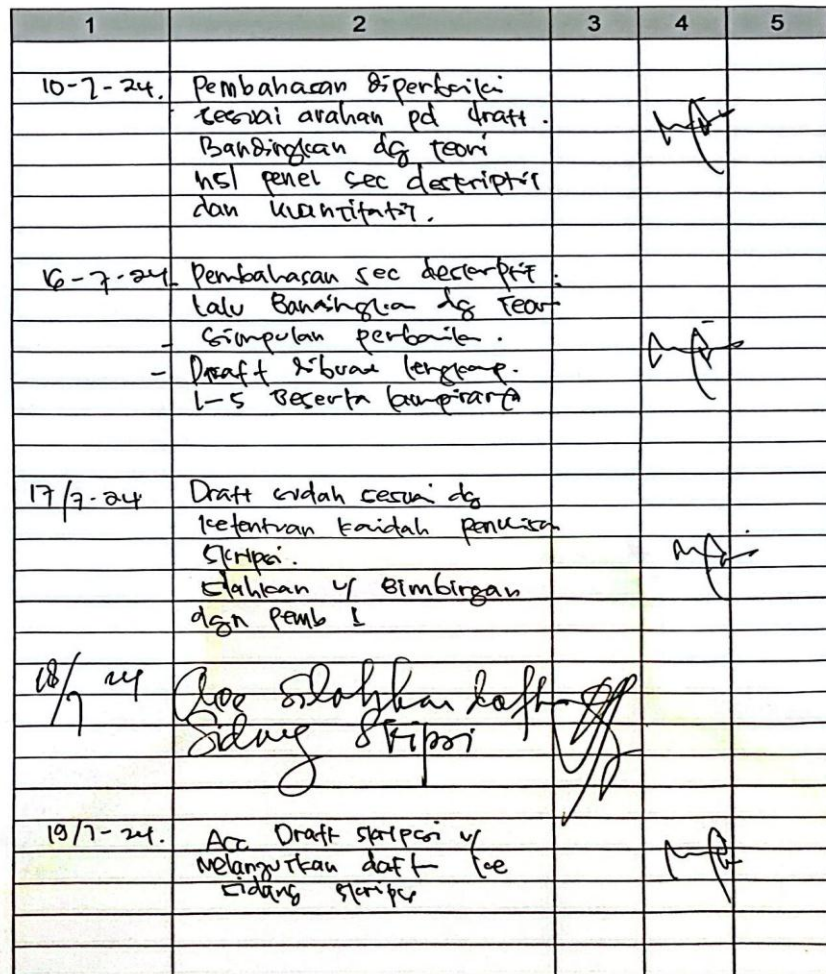 1 2 3 4 5
10-7-24. Pembahasan diperbaiki
sesuai arahan pd draft.
Bandingkan dg teori
hsl penel sec deskriptif
dan kuantitatif.
16-7-24 Pembahasan sec deskriptif.
lalu Bandingkan dg Teori
- Simpulan perbaiki.
- Draft dibuat lengkap.
1-5 Beserta lampiran
17/7-24 Draft sudah sesuai dg
ketentuan kaidah penulisan
skripsi.
silahkan u/ Bimbingan
dgn pemb 1
18/7 24 Acc silahkan daftar
Sidang Skripsi
19/7-24. Acc Draft skripsi u/
melanjutkan daft ke
sidang skripsi